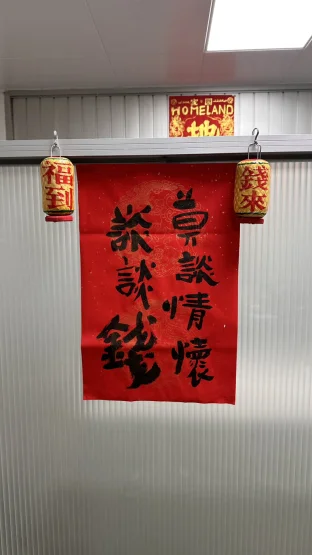 HOMELAND
地
福到
錢來
莫談情懷
談談錢